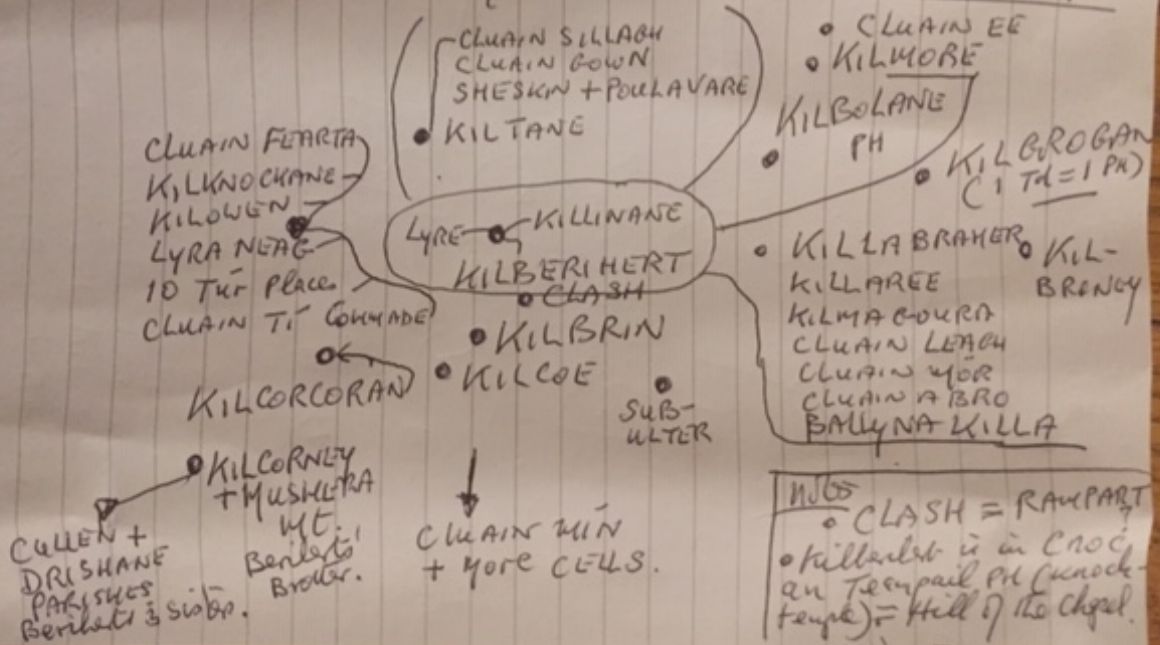 CLUAIN SILLAGH
CLUAIN GOWN
SHESKIN + POULAVARE
KILTANE
CLUAIN EE
KILMORE
KILBOLANE
PH
KILGROGAN
(1 Td = 1 PH)
CLUAIN FEARTA
KILKNOCKANE
KILOWEN
LYRA NEAG
10 Tur Places
CLUAIN TI COMMADE
KILCORCORAN
LYRE
KILLINANE
KILBERIHERT
CLASH
KILBRIN
KILCOE
SUB-
ULTER
KILLABRAHER
KILLAREE
KILMAGOURA
CLUAIN LEAGH
CLUAIN MÓR
CLUAIN A BRO
BALLYNA KILLA
KIL-
BRONEY
KILCORNEY
+ MUSHERA
Mt.
Beriherts'
Brother.
CULLEN +
DRISHANE
PARISHES
Beriherts 3 Sisters.
CLUAIN MIN
+ More CELLS.
Notes
• CLASH = RAMPART
• is in Cnoc
an Teampaill PH (Knock-
temple) = Hill of the Chapel.